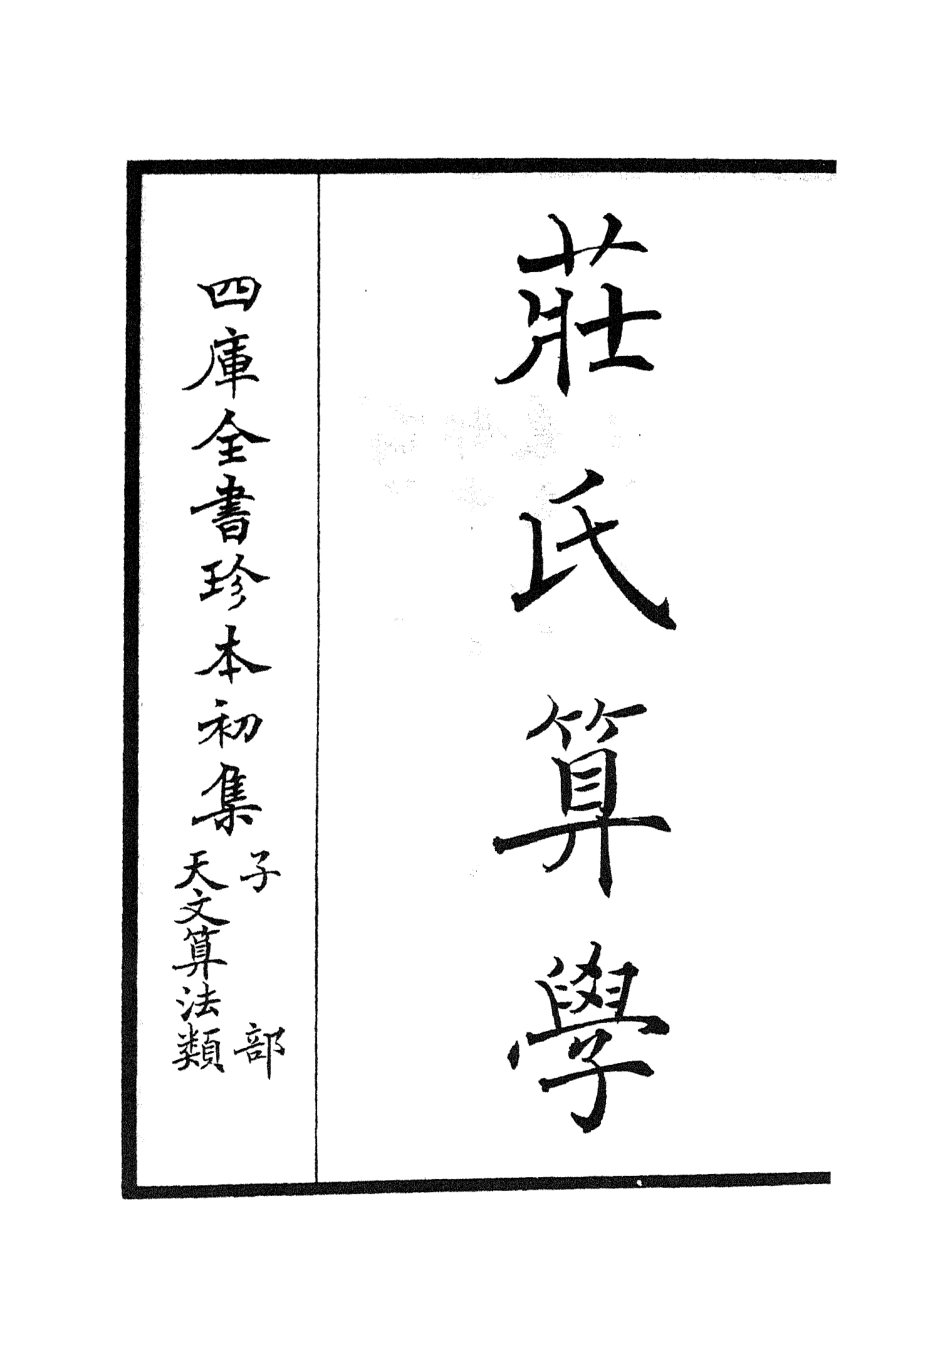 莊氏算學
四庫全書珍本初集
子部
天文算法類